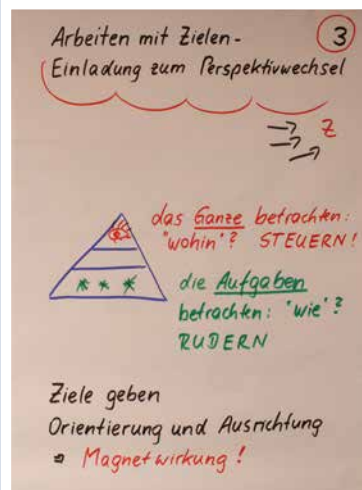 3
Arbeiten mit Zielen -
Einladung zum Perspektivwechsel
Z
das Ganze betrachten:
"wohin"? STEUERN!
die Aufgaben
betrachten: "wie"?
RUDERN
Ziele geben
Orientierung und Ausrichtung
⇒ Magnetwirkung!